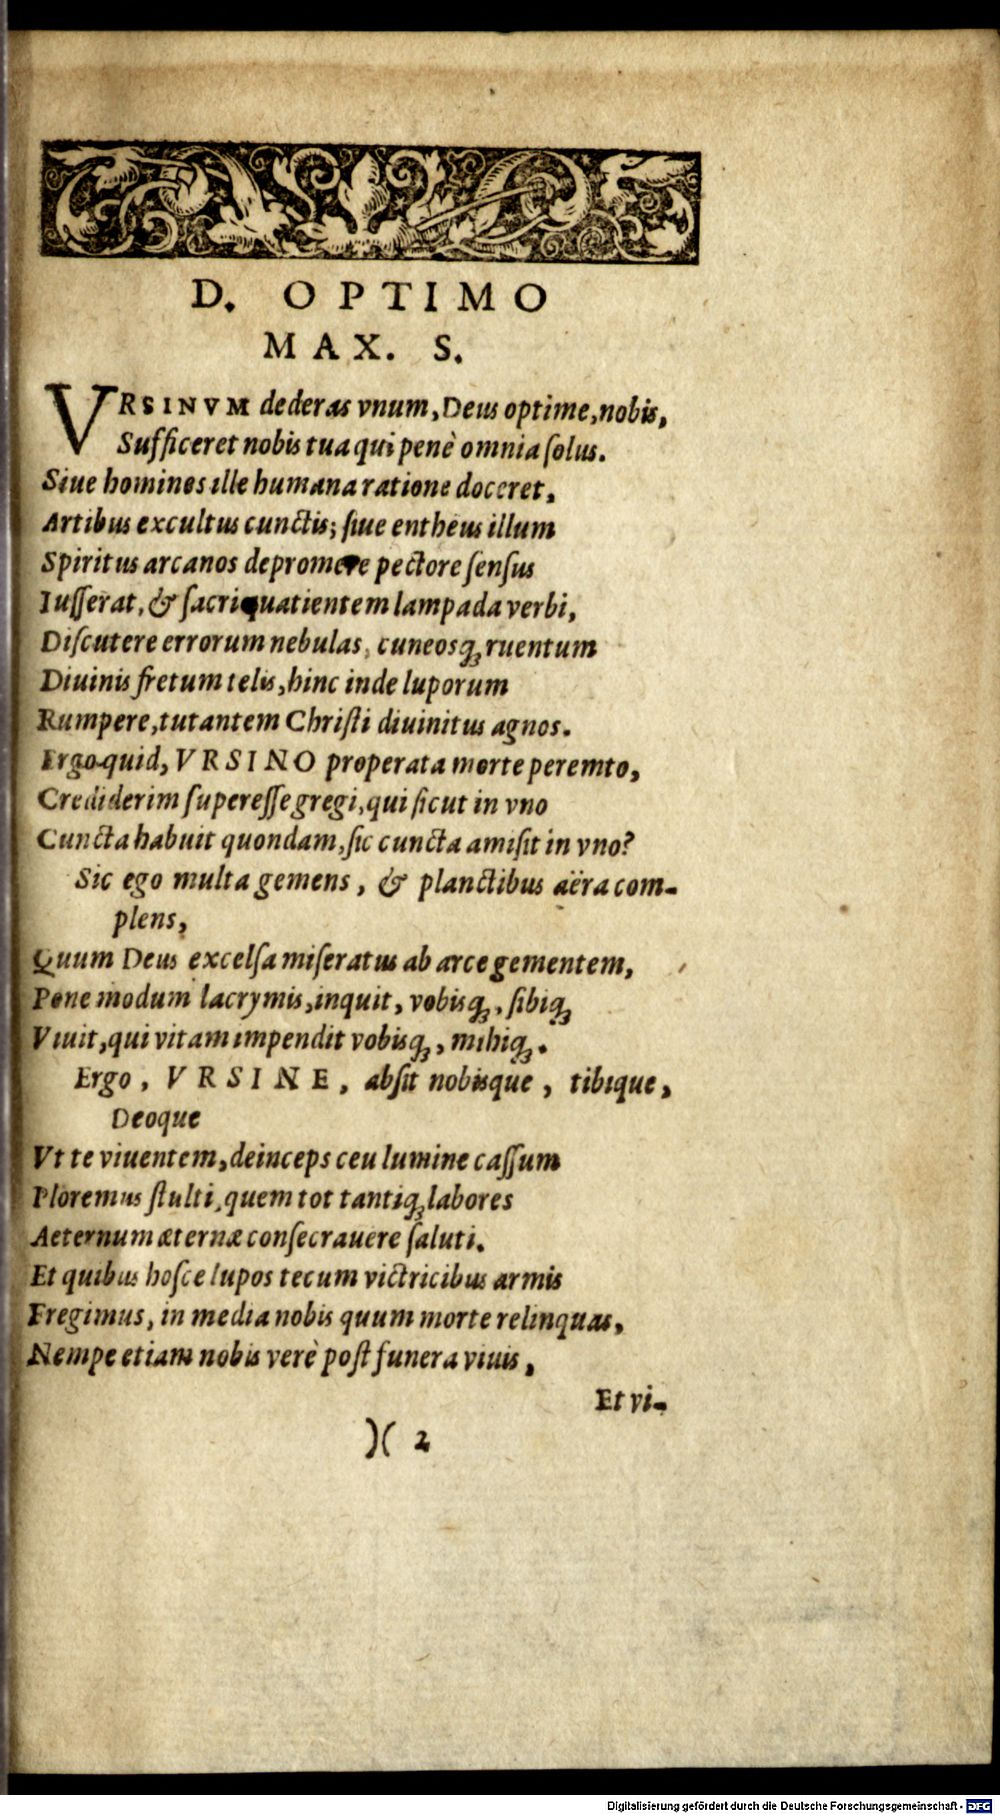 D. OPTIMO
MAX. S.
VRSINVM dederas vnum, Deus optime, nobis,
Sufficeret nobis tua qui penè omnia ſolus.
Siue homines ille humana ratione doceret,
Artibus excultus cunctis; ſiue entheus illum
Spiritus arcanos depromere pectore ſenſus
Iuſſerat, & ſacri quatientem lampada verbi,
Diſcutere errorum nebulas, cuneosq́ꝫ ruentum
Diuinis fretum telis, hinc inde luporum
Rumpere, tutantem Chriſti diuinitus agnos.
Ergo quid, VRSINO properata morte peremto,
Crediderim ſupereſſe gregi, qui ſicut in vno
Cuncta habuit quondam, ſic cuncta amiſit in vno?
Sic ego multa gemens, & planctibus aëra com-
plens,
Quum Deus excelſa miſeratus ab arce gementem,
Pone modum lacrymis, inquit, vobisqꝫ, ſibiqꝫ
Viuit, qui vitam impendit vobisqꝫ, mihiqꝫ.
Ergo, VRSINE, abſit nobisque, tibique,
Deoque
Vt te viuentem, deinceps ceu lumine caſſum
Ploremus ſtulti, quem tot tantiqꝫ labores
Aeternum æternæ conſecrauere ſaluti.
Et quibus hoſce lupos tecum victricibus armis
Fregimus, in media nobis quum morte relinquas,
Nempe etiam nobis verè poſt funera viuis,
Et vi-
)( 2
Digitalisierung gefördert durch die Deutsche Forschungsgemeinschaft - DFG